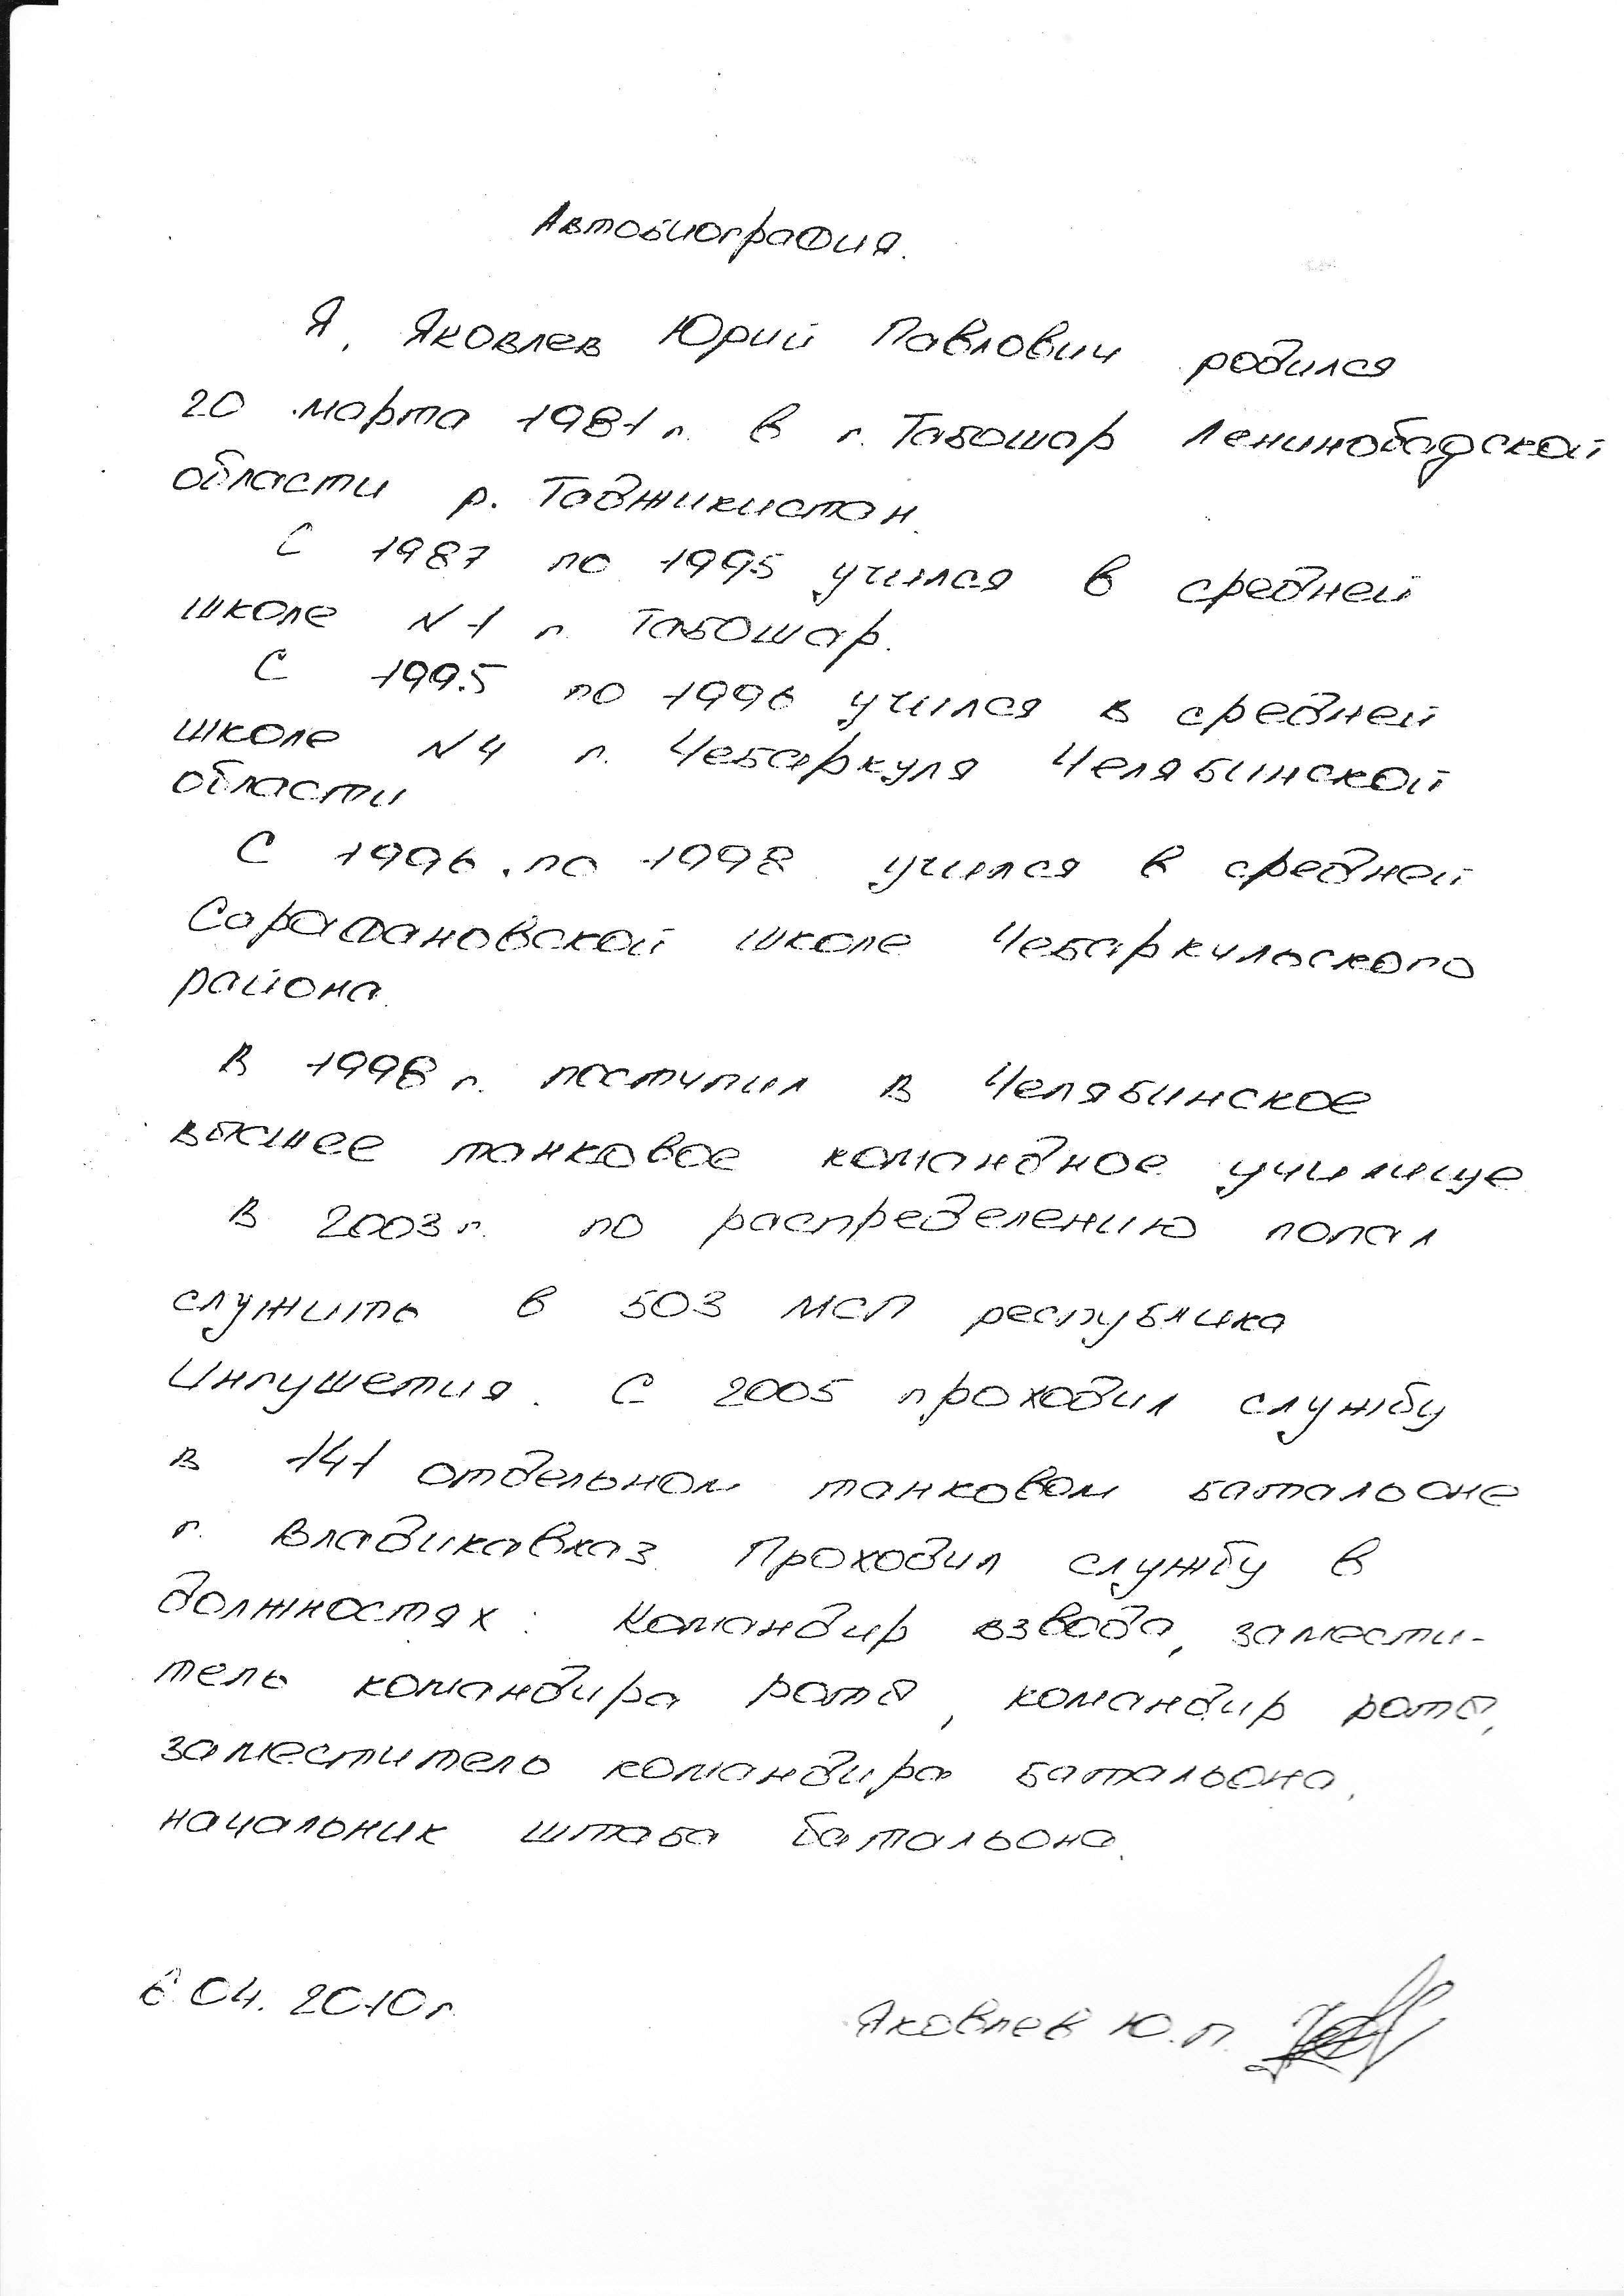 Автобиография.
Я, Яковлев Юрий Павлович родился
20 марта 1981 г. в г. Табошар Ленинобадской
области р. Таджикистан.
С 1987 по 1995 учился в средней
школе N 1 г. Табошар.
С 1995 по 1996 учился в средней
школе N 4 г. Чебаркуля Челябинской
области
С 1996 по 1998 учился в средней
Сарафановской школе Чебаркульского
района.
В 1998 г. поступил в Челябинское
высшее танковое командное училище
В 2003 г. по распределению попал
служить в 503 МСП республика
Ингушетия. С 2005 проходил службу
в 141 отдельном танковом батальоне
г. Владикавказ. Проходил службу в
должностях: Командир взвода, замести-
тель командира роты, командир роты,
заместитель командира батальона,
начальник штаба батальона.
6.04.2010г.
Яковлев Ю.П.